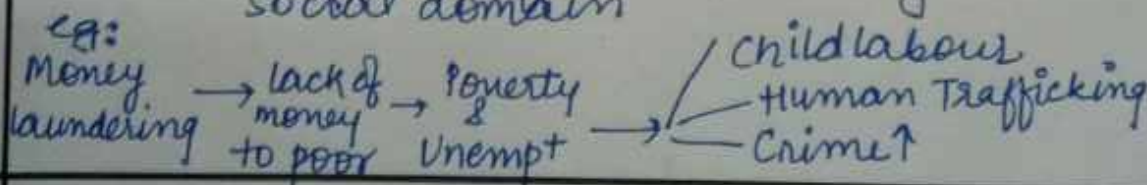 social domain
eg:
Money laundering → lack of money to poor → Poverty & Unempt →
Child labour
Human Trafficking
Crime↑